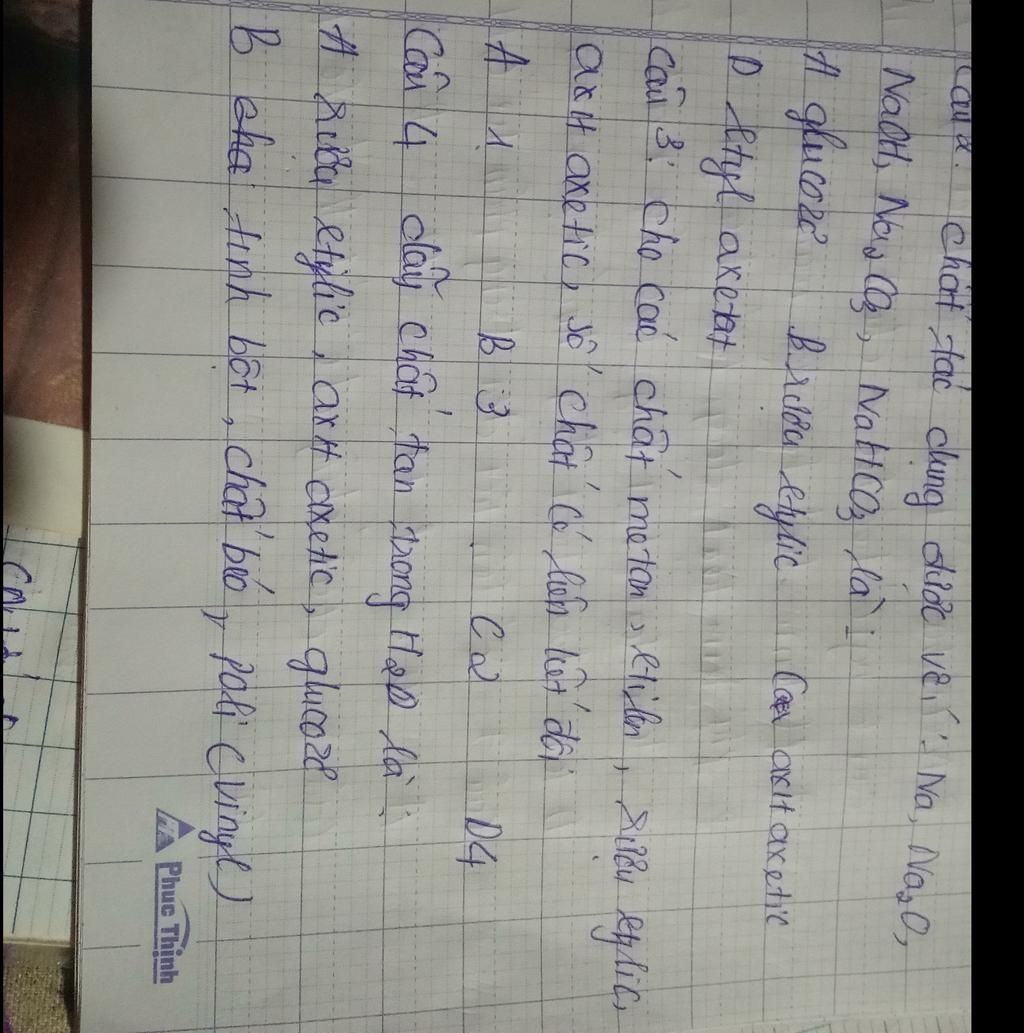 Câu 2. chất tác dụng được với: Na, Na₂O,
NaOH, Na₂CO₃, NaHCO₃ là:
A glucozơ B rượu etylic C axit axetic
D etyl axetat
Câu 3: cho các chất metan, etilen, rượu etylic,
axit axetic, số chất có liên kết đôi
A 1 B 3 C 2 D 4
Câu 4 dãy chất tan trong H₂O là:
A rượu etylic, axit axetic, glucozơ
B tinh bột, chất béo, poli (vinyl)
Phuc Thịnh